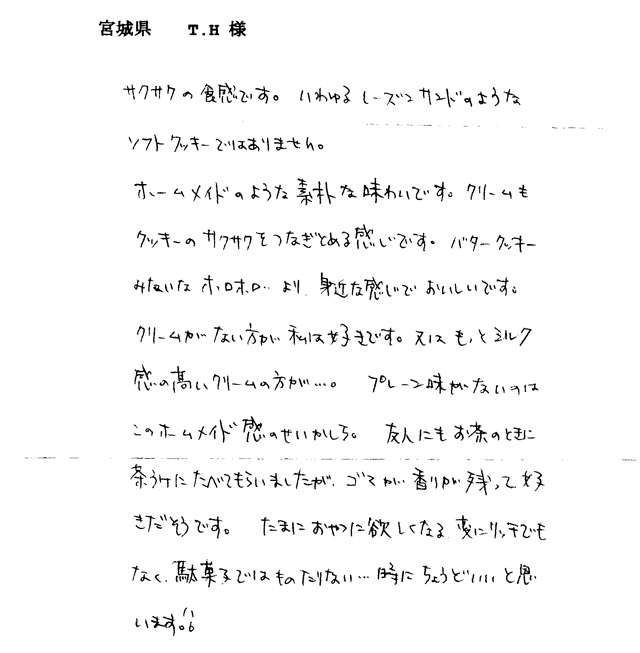 宮城県 T.H 様
サクサクの食感です。いわゆるレーズンサンドのような
ソフトクッキーではありません。
ホームメイドのような素朴な味わいです。クリームも
クッキーのサクサクをつなぎとめる感じです。バタークッキー
みたいなホロホロ… より、身近な感じでおいしいです。
クリームがない方が私は好きです。又は もっとミルク
感の高いクリームの方が…。 プレーン味がないのは
このホームメイド感のせいかしら。 友人にもお茶のときに
茶うけにたべてもらいましたが、ゴマが香りが残って好
きだそうです。 たまにおやつに欲しくなる、変にリッチでも
なく、駄菓子ではものたりない…時にちょうどいいと思
います!!